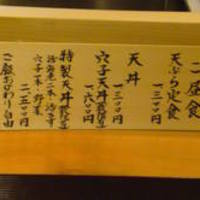 ご昼食
天ぷら定食
一、三〇〇円
天丼
一、三〇〇円
穴子天丼
一、六〇〇円
特製天丼
穴子一本・野菜
二、五〇〇円
ご飯おかわり自由